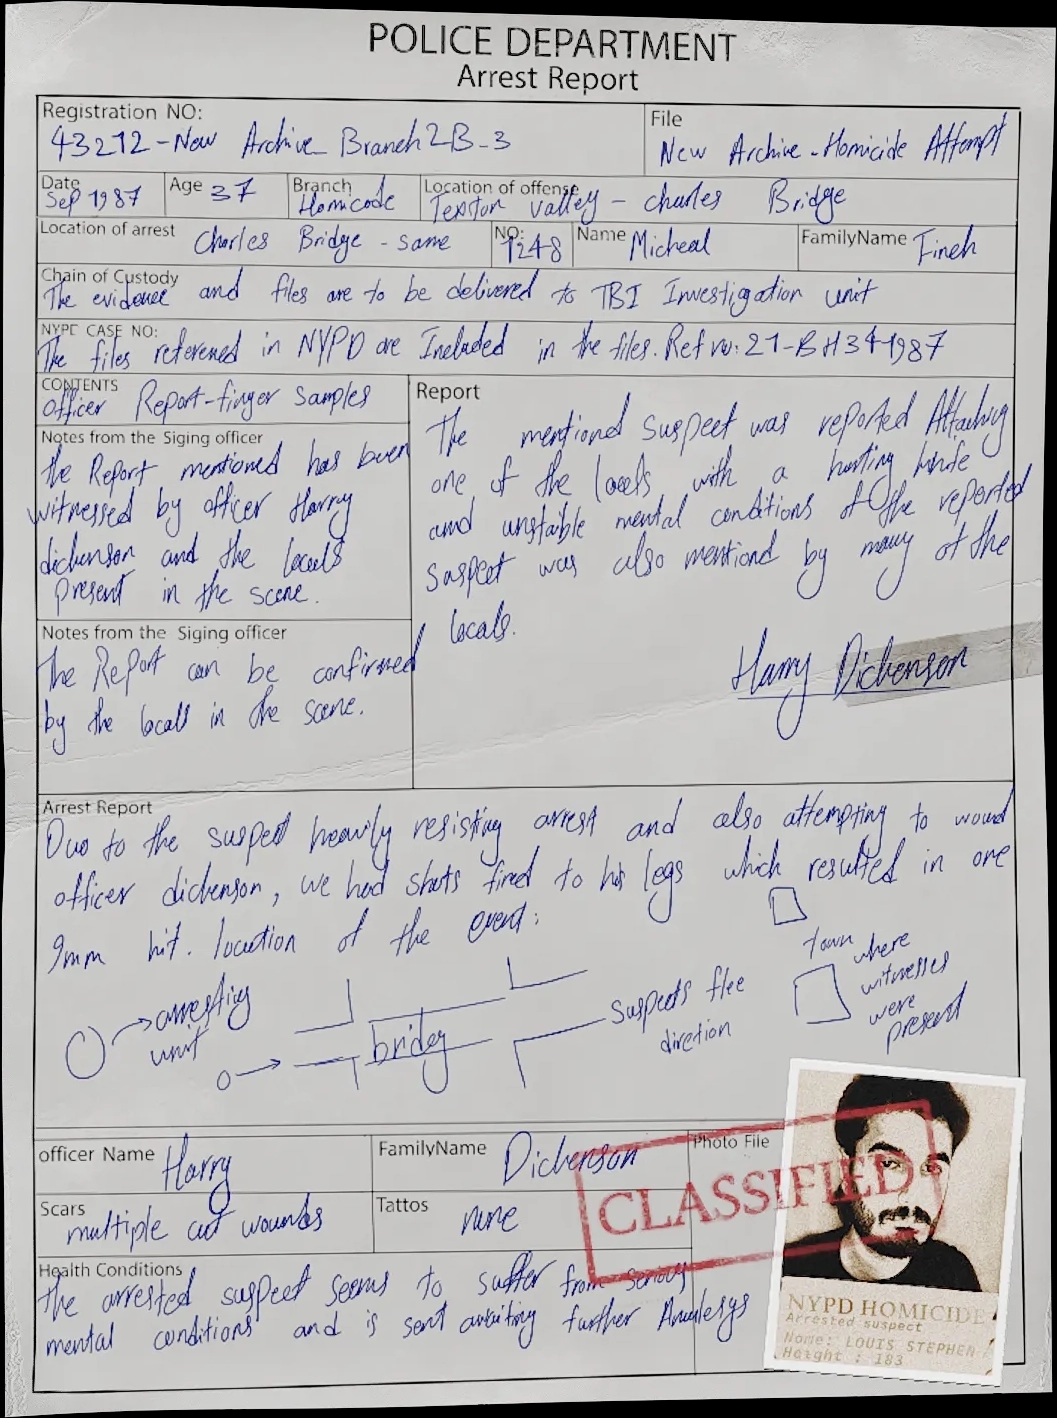 POLICE DEPARTMENT
Arrest Report
Registration NO:
43212-New Archive Branch 2B-3
File
New Archive-Homicide Attempt
Date
Sep 1987
Age 37
Branch
Homicode
Location of offense
Texton Valley - charles Bridge
Location of arrest Charles Bridge - same
NO:
1248
Name Micheal
FamilyName Fineh
Chain of Custody
The evidence and files are to be delivered to TBI Investigation unit
NYPC CASE NO:
The files referened in NYPD are Included in the files. Ref no: 21-BH34-1987
CONTENTS
officer Report-finger Samples
Notes from the Siging officer
the Report mentioned has been
witnessed by officer Harry
dickenson and the locals
Present in the scene.
Notes from the Siging officer
The Report can be confirmed
by the locals in the scene.
Report
The mentioned suspect was reported Attacking
one of the locals with a hunting knife
and unstable mental conditions of the reported
suspect was also mentiond by many of the
locals.
Harry Dickenson
Arrest Report
Due to the suspect heavily resisting arrest and also attempting to wound
officer dickenson, we had shots fired to his legs which resulted in one
9mm hit. location of the event:
arresting
unit
bridey
Suspects flee
direction
town where
witnesses
were
present
officer Name Harry
FamilyName Dickenson
Photo File
Scars
multiple cut wounds
Tattos
none
CLASSIFIED
Health Conditions
the arrested suspect seems to suffer from serious
mental conditions and is sent awaiting further
NYPD HOMICIDE
Arrested suspect
Name: LOUIS STEPHEN
Height : 183